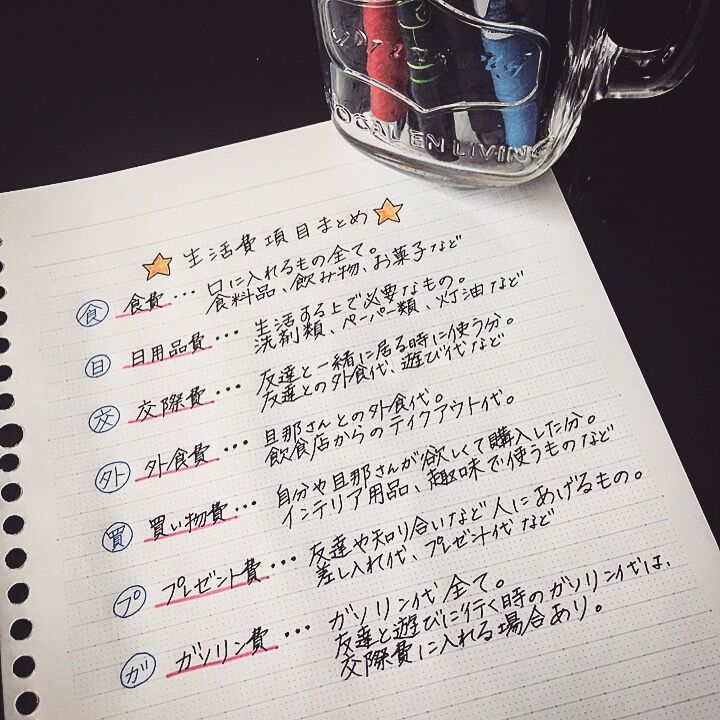 OCAL EN LIVING
生活費項目まとめ
食 食費… 口に入れるもの全て。
食料品、飲み物、お菓子など
日 日用品費… 生活する上で必要なもの。
洗剤類、ペーパー類、灯油など
交 交際費… 友達と一緒に居る時に使う分。
友達との外食代、遊び代など
外 外食費… 旦那さんとの外食代。
飲食店からのテイクアウト代。
買 買い物費… 自分や旦那さんが欲しくて購入した分。
インテリア用品、趣味で使うものなど
プ プレゼント費… 友達や知り合いなど人にあげるもの。
差し入れ代、プレゼント代など
ガ ガソリン費… ガソリン代全て。
友達と遊びに行く時のガソリン代は、
交際費に入れる場合あり。